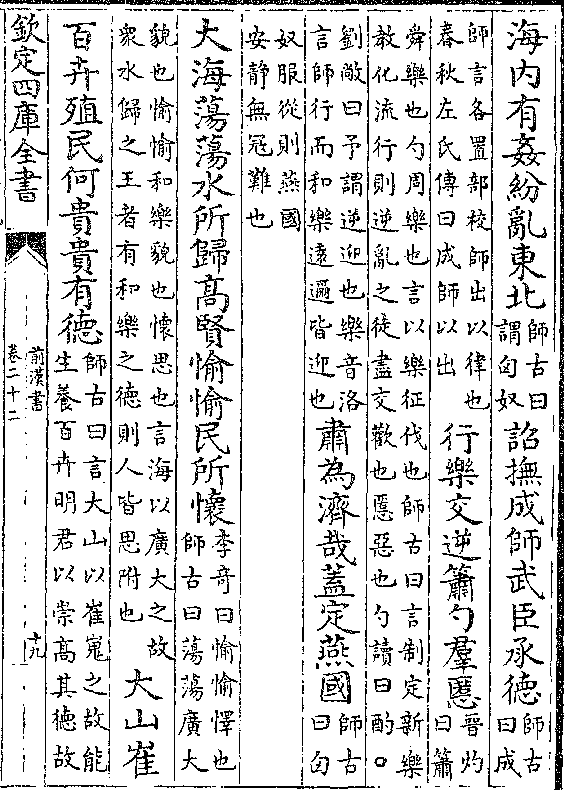 海内有姦紛亂東北
師古曰
謂匈奴
詔撫成師武臣承德
師古
曰成
師言各置部校師出以律也
春秋左氏傳曰成師以出
行樂交逆簫勺羣慝
晉灼
曰簫
舜樂也勺周樂也言以樂征伐也師古曰言制定新樂
教化流行則逆亂之徒盡交歡也慝惡也勺讀曰酌。
劉敞曰予謂逆迎也樂音洛
言師行而和樂遠邇皆迎也
肅為濟哉蓋定燕國
師古
曰匈
奴服從則燕國
安静無冦難也
大海蕩蕩水所歸高賢愉愉民所懷
李奇曰愉愉懌也
師古曰蕩蕩廣大
貌也愉愉和樂貌也懷思也言海以廣大之故
衆水歸之王者有和樂之德則人皆思附也
大山崔
百卉殖民何貴貴有德
師古曰言大山以崔嵬之故能
生養百卉明君以崇高其德故
欽定四庫全書
前漢書
卷二十二
十九